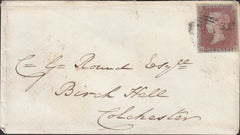 C. G. Round Esqre
Birch Hall
Colchester